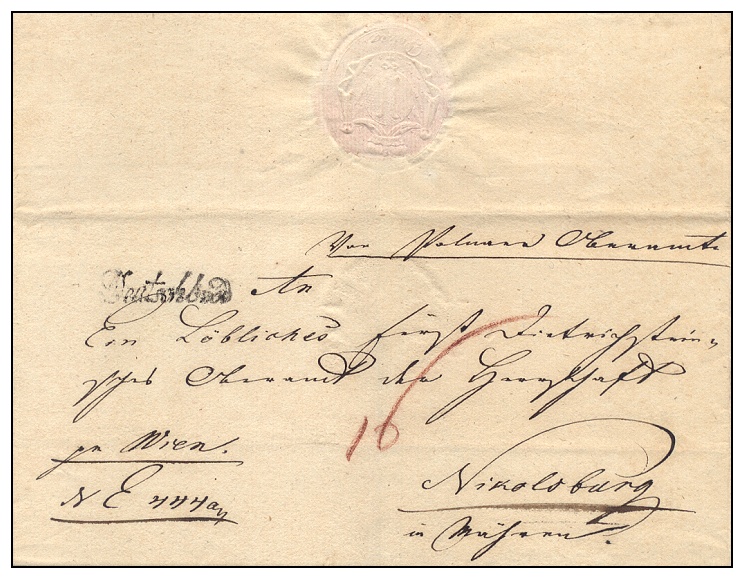 Von Polnaer Oberamte
Deutschbrod
An
Ein Löbliches Fürst Dietrichstein„
sches Oberamt der Herrschaft
16
pr Wien.
Nikolsburg
in Mähren.